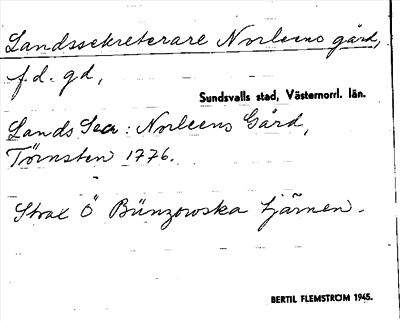 Landssekreterare Norleens gård,
f.d. gd,
Sundsvalls stad, Västernorrl. län.
Lands Sec: Norleens Gård,
Törnsten 1776.
Strax Ö Bünzowska tjärnen.
BERTIL FLEMSTRÖM 1945.